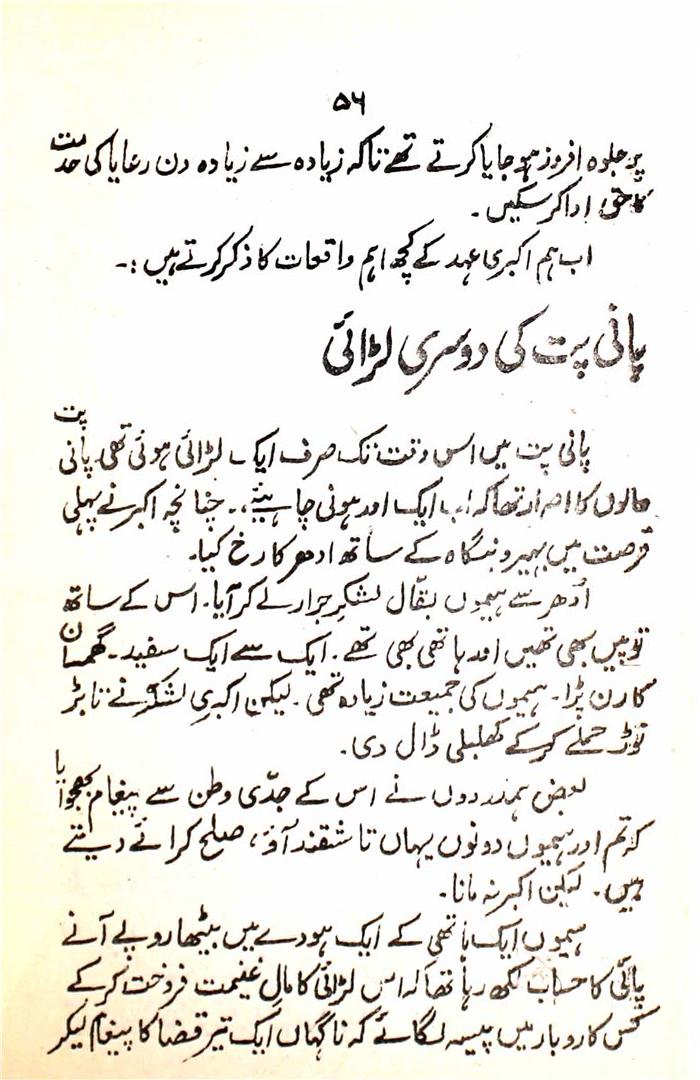 ۵۶
پر جلوہ افروز ہو جایا کرتے تھے تاکہ زیادہ سے زیادہ دن رعایا کی خدمت
کا حق ادا کر سکیں ۔
اب ہم اکبری عہد کے کچھ اہم واقعات کا ذکر کرتے ہیں :۔
پانی پت کی دوسری لڑائی
پانی پت میں اس وقت تک صرف ایک لڑائی ہوئی تھی پانی پت
والوں کا اصرار تھا کہ اب ایک اور ہونی چاہیئے ۔ چنانچہ اکبر نے پہلی
فرصت میں بہیر و بنگاہ کے ساتھ ادھر کا رخ کیا۔
اُدھر سے ہیموں بقّال لشکرِ جرار لے کر آیا۔ اس کے ساتھ
توپیں بھی تھیں اور ہاتھی بھی تھے ۔ ایک سے ایک سفید ۔ گھمسان
کا رن پڑا۔ ہیموں کی جمیعت زیادہ تھی ۔ لیکن اکبری لشکر نے تابڑ
توڑ حملے کر کے کھلبلی ڈال دی ۔
بعض ہمدردوں نے اس کے جدّی وطن سے پیغام بھجوایا
کہ تم اور ہیموں دونوں یہاں تاشقند آؤ ، صلح کرائے دیتے
ہیں۔ لیکن اکبر نہ مانا۔
ہیموں ایک ہاتھی کے ایک ہودے میں بیٹھا روپے آنے
پائی کا حساب لکھ رہا تھا کہ اس لڑائی کا مالِ غنیمت فروخت کر کے
کس کاروبار میں پیسہ لگائے کہ ناگہاں ایک تیر قضا کا پیغام لیکر